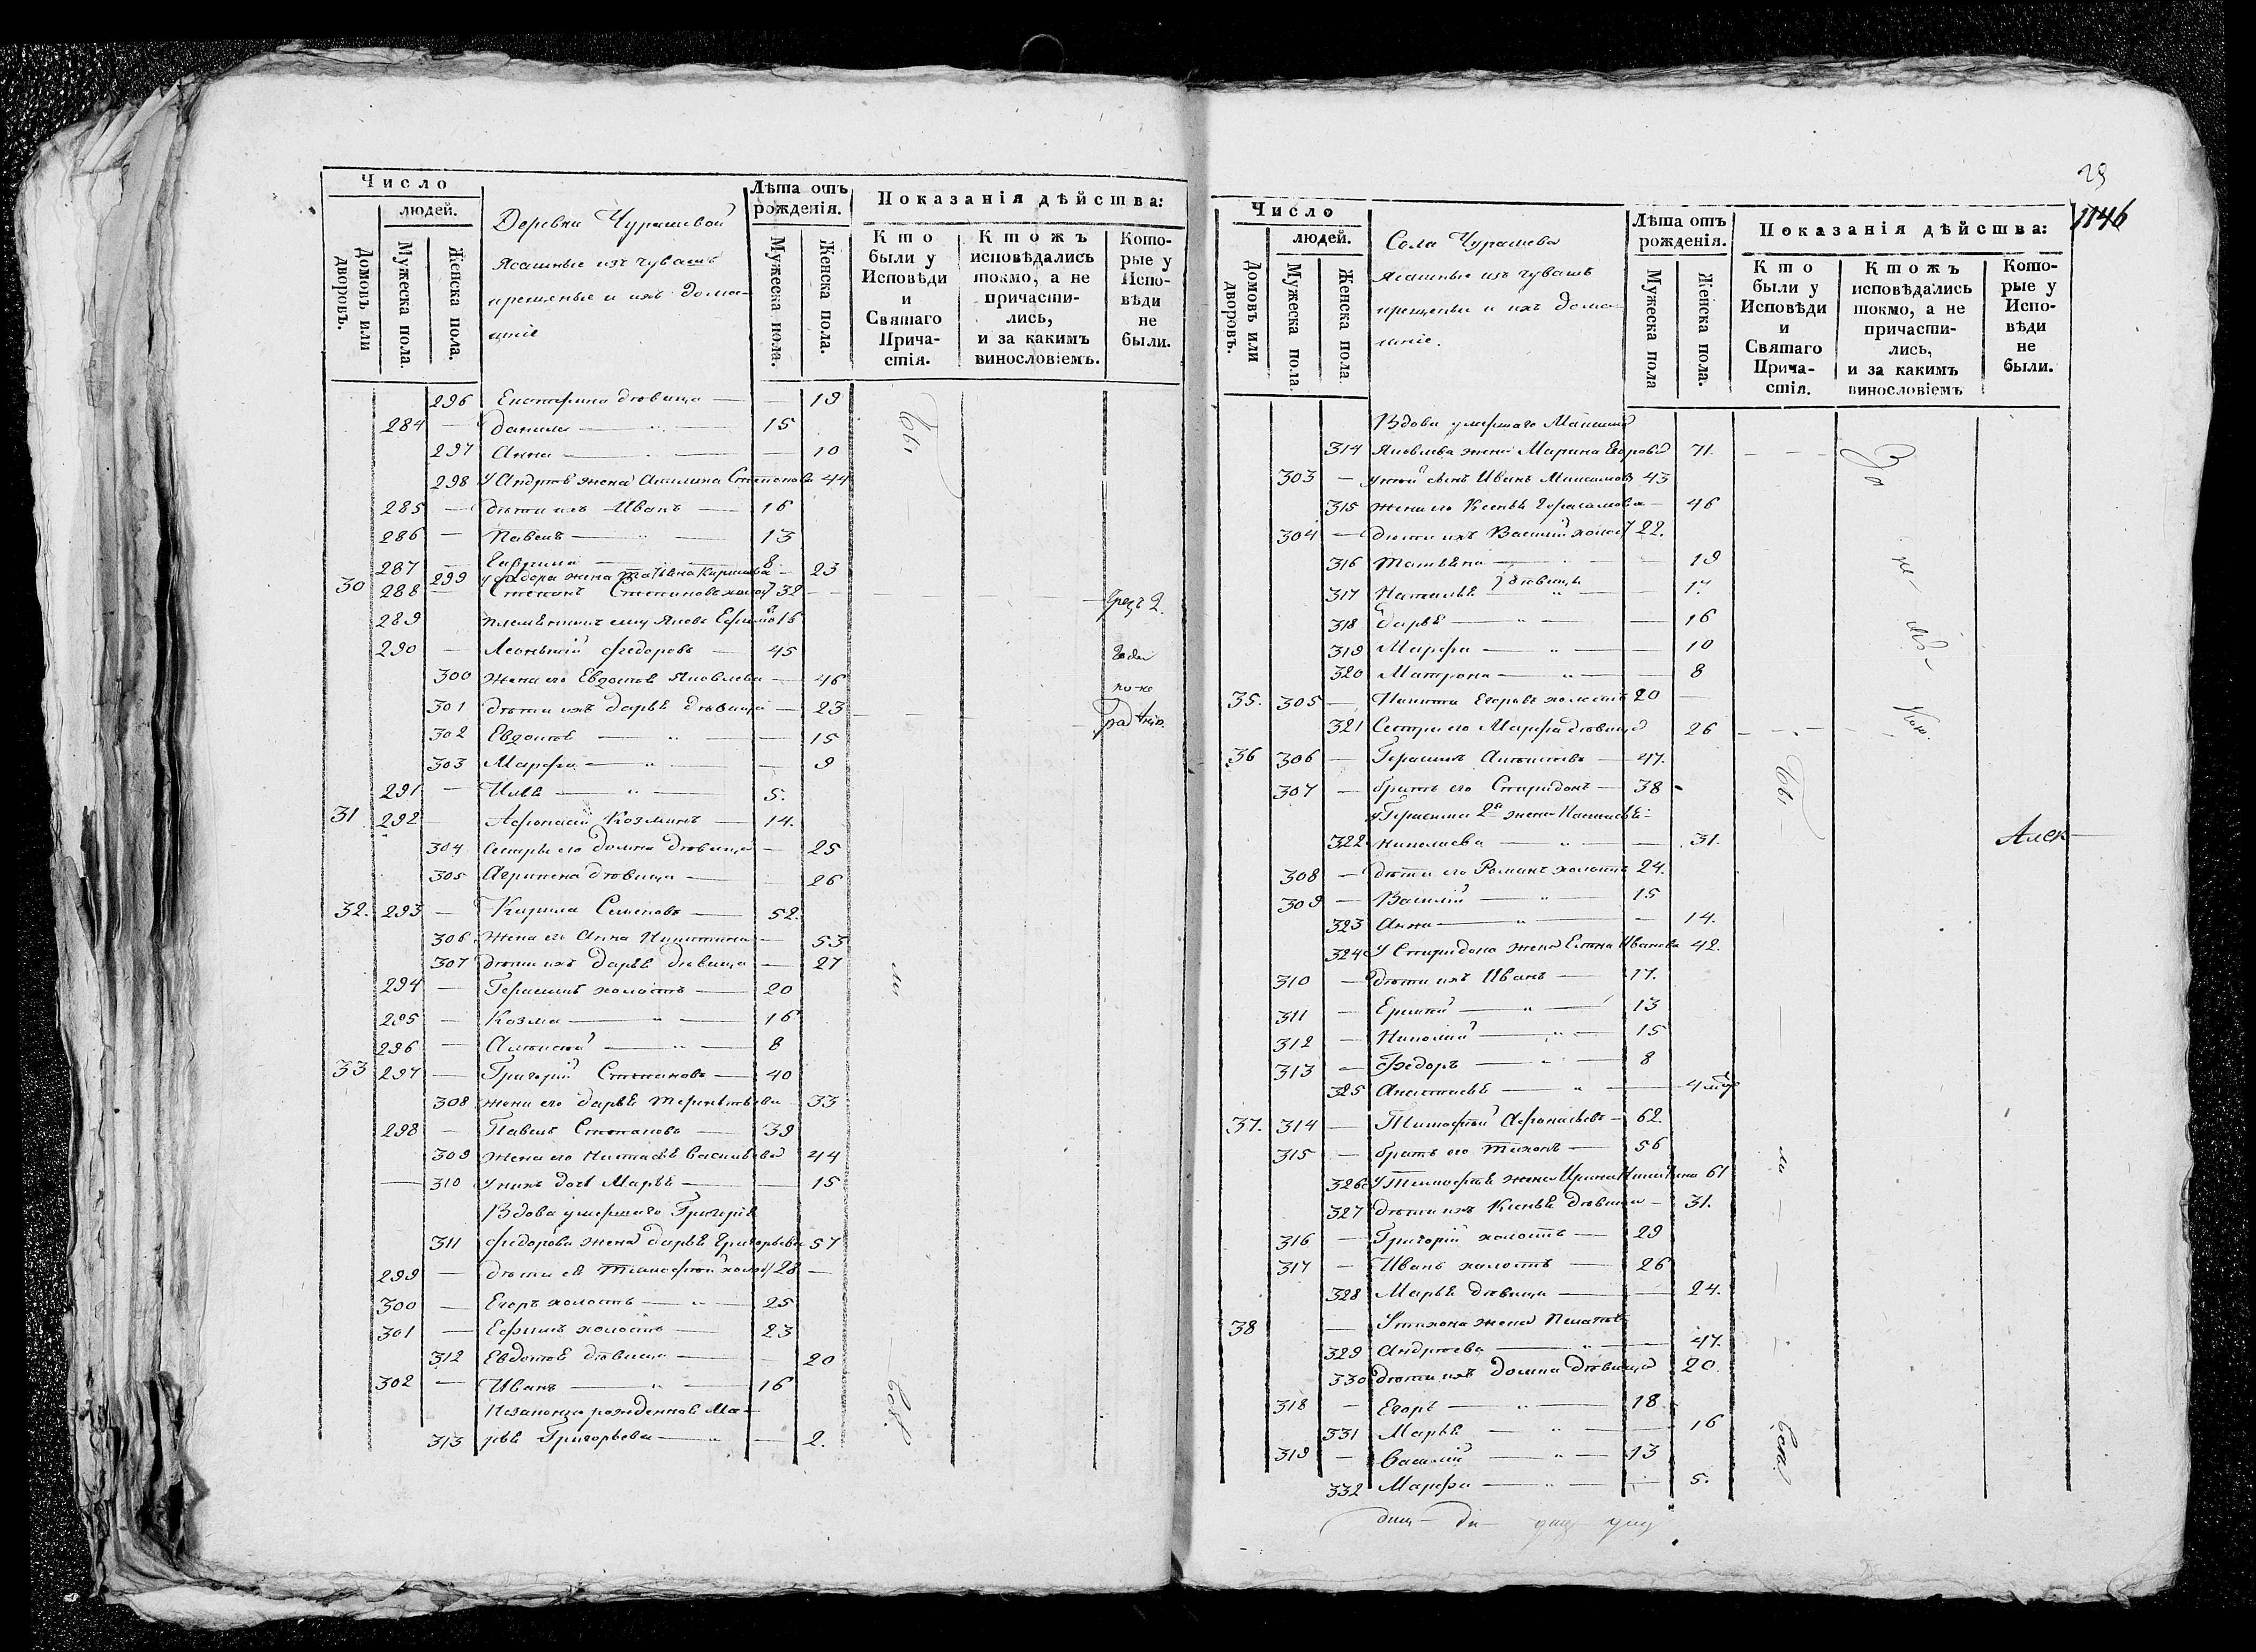 Число
людей.
Домовъ или дворовъ.
Мужеска пола.
Женска пола.
Деревни Чурашевой
Ясашные изъ чувашъ
крещеные и ихъ дома-
шніе
Лѣта отъ рожденія.
Мужеска пола.
Женска пола.
Показанія дѣйства:
Кто были у Исповѣди и Святаго Причастія.
Ктожъ исповѣдались токмо, а не причастились, и за какимъ винословіемъ.
Которые у Исповѣди не были.
296 Екатерина дѣвица — — 19
284 — Данила — " — 15
297 Анна — — 10
298 У Андрея жена Акилина Степанова 44
285 — дѣти ихъ Иванъ — 16
286 — Павелъ — " — 13
287 — Гаврила — 8
299 У Федора жена Татьяна Кирилова — 23
30 288 — Степанъ Степановъ холос 32
289 племянникъ ему Яковъ Ефимовъ 16
290 — Леонтий Федоровъ — 45
300 Жена его Евдокия Яковлева — 46
301 дѣти ихъ Дарья дѣвица — 23
302 Евдокия — " — 15
303 Марфа — " — 9
291 — Илья — " — 5.
31 292 — Афонасий Козминъ — 14.
304 Сестры его Домна дѣвица — 25
305 Агрипена дѣвица — 26
32. 293 — Кирила Семеновъ — 52.
306 Жена его Анна Никитина — 53
307 дѣти ихъ Дарья дѣвица — 27
294 — Герасимъ холостъ — 20
295 — Козма — " — 16
296 — Алексей — " — 8
33 297 — Григорий Степановъ — 40
308 жена его Дарья Терентьева 33
298 — Павелъ Степановъ — 39
309 Жена его Настасья Васильева 44
— 310 У нихъ дочь Марья — — 15
Вдова умершаго Григорья
311 Федорова жена Дарья Григорьева 57
299 — дѣти ея Тимофей холос 28 —
300 — Егоръ холостъ — " — 25
301 — Ефимъ холостъ — 23
312 Евдокия дѣвица — — 20
302 — Иванъ — " — 16
Незаконо рожденная Ма-
313 рья Григорьева — " — 2.
Бы
ли
29
1146
Число
людей.
Домовъ или дворовъ.
Мужеска пола.
Женска пола.
Села Чурашева
Ясашные изъ чувашъ
крещеные и ихъ дома-
шніе.
Лѣта отъ рожденія.
Мужеска пола
Женска пола.
Показанія дѣйства:
Кто были у Исповѣди и Святаго Причастія.
Ктожъ исповѣдались токмо, а не причастились, и за какимъ винословіемъ
Которые у Исповѣди не были.
Вдова умершаго Максима
314 Яковлева жена Марина Егорова 71.
303 — у ней сынъ Иванъ Максимовъ 43
315 жена его Ксенья Герасимова — 46
304 — дѣти ихъ Василий холос 22.
316 Татьяна — 19
317 Наталья дѣвицы — 17.
318 Дарья — " — 16
319 Марфа — " — 10
320 Матрона — " — 8
35. 305 — Никита Егоровъ холостъ 20 —
321 Сестра его Марфа дѣвица 26
36 306 — Герасимъ Алексѣевъ — 47.
307 — братъ его Спиридонъ — 38
У Герасима 2я жена Настасья
322 Николаева — " — 31.
308 — дѣти его Романъ холостъ 24.
309 — Василий — " — 15
323 Анна — " — 14.
324 У Спиридона жена Елена Иванова 42.
310 — дѣти ихъ Иванъ — 17.
311 — — " — 13
312 — Николай — " — 15
313 — Федоръ — " — 8
325 Анастасья — " —
37. 314 — Тимофей Афонасьевъ — 62.
315 — братъ его Тихонъ — 56
326 У Тимофея жена Ирина Никитина 61
327 дѣти ихъ Ксенья дѣвица — 31.
316 — Григорий холостъ — 29
317 — Иванъ холостъ — 26
328 Марья дѣвица — 24.
38 — У Тихона жена Пелагея
329 Андреева — " — 47.
330 дѣти ихъ Домна дѣвица 20.
318 — Егоръ — " — 18
331 Марья — " — 16
319 — Василий — " — 13
332 Марфа — " — 5.
За
не
Бы
ли
Алек